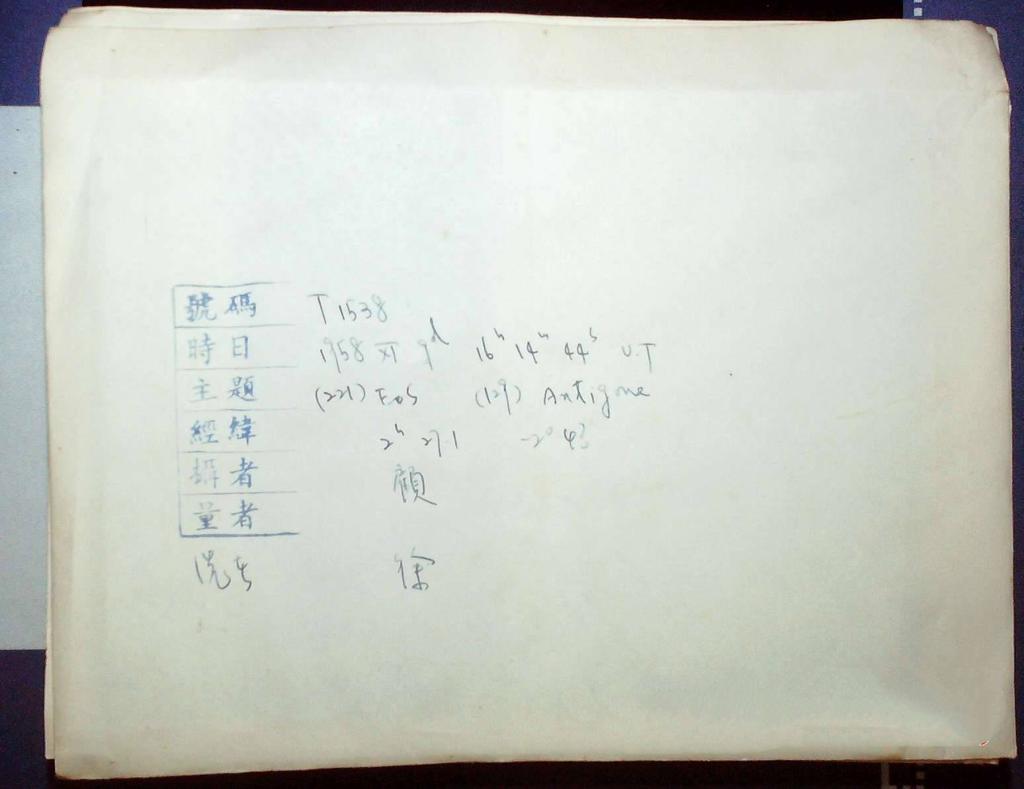 號碼 T 1538
時日 1958 XI 9d 16h 14m 44s U.T
主題 (221) Eos (129) Antigone
經緯 2h 27.1 -2° 43
攝者 顧
量者
洗者 徐